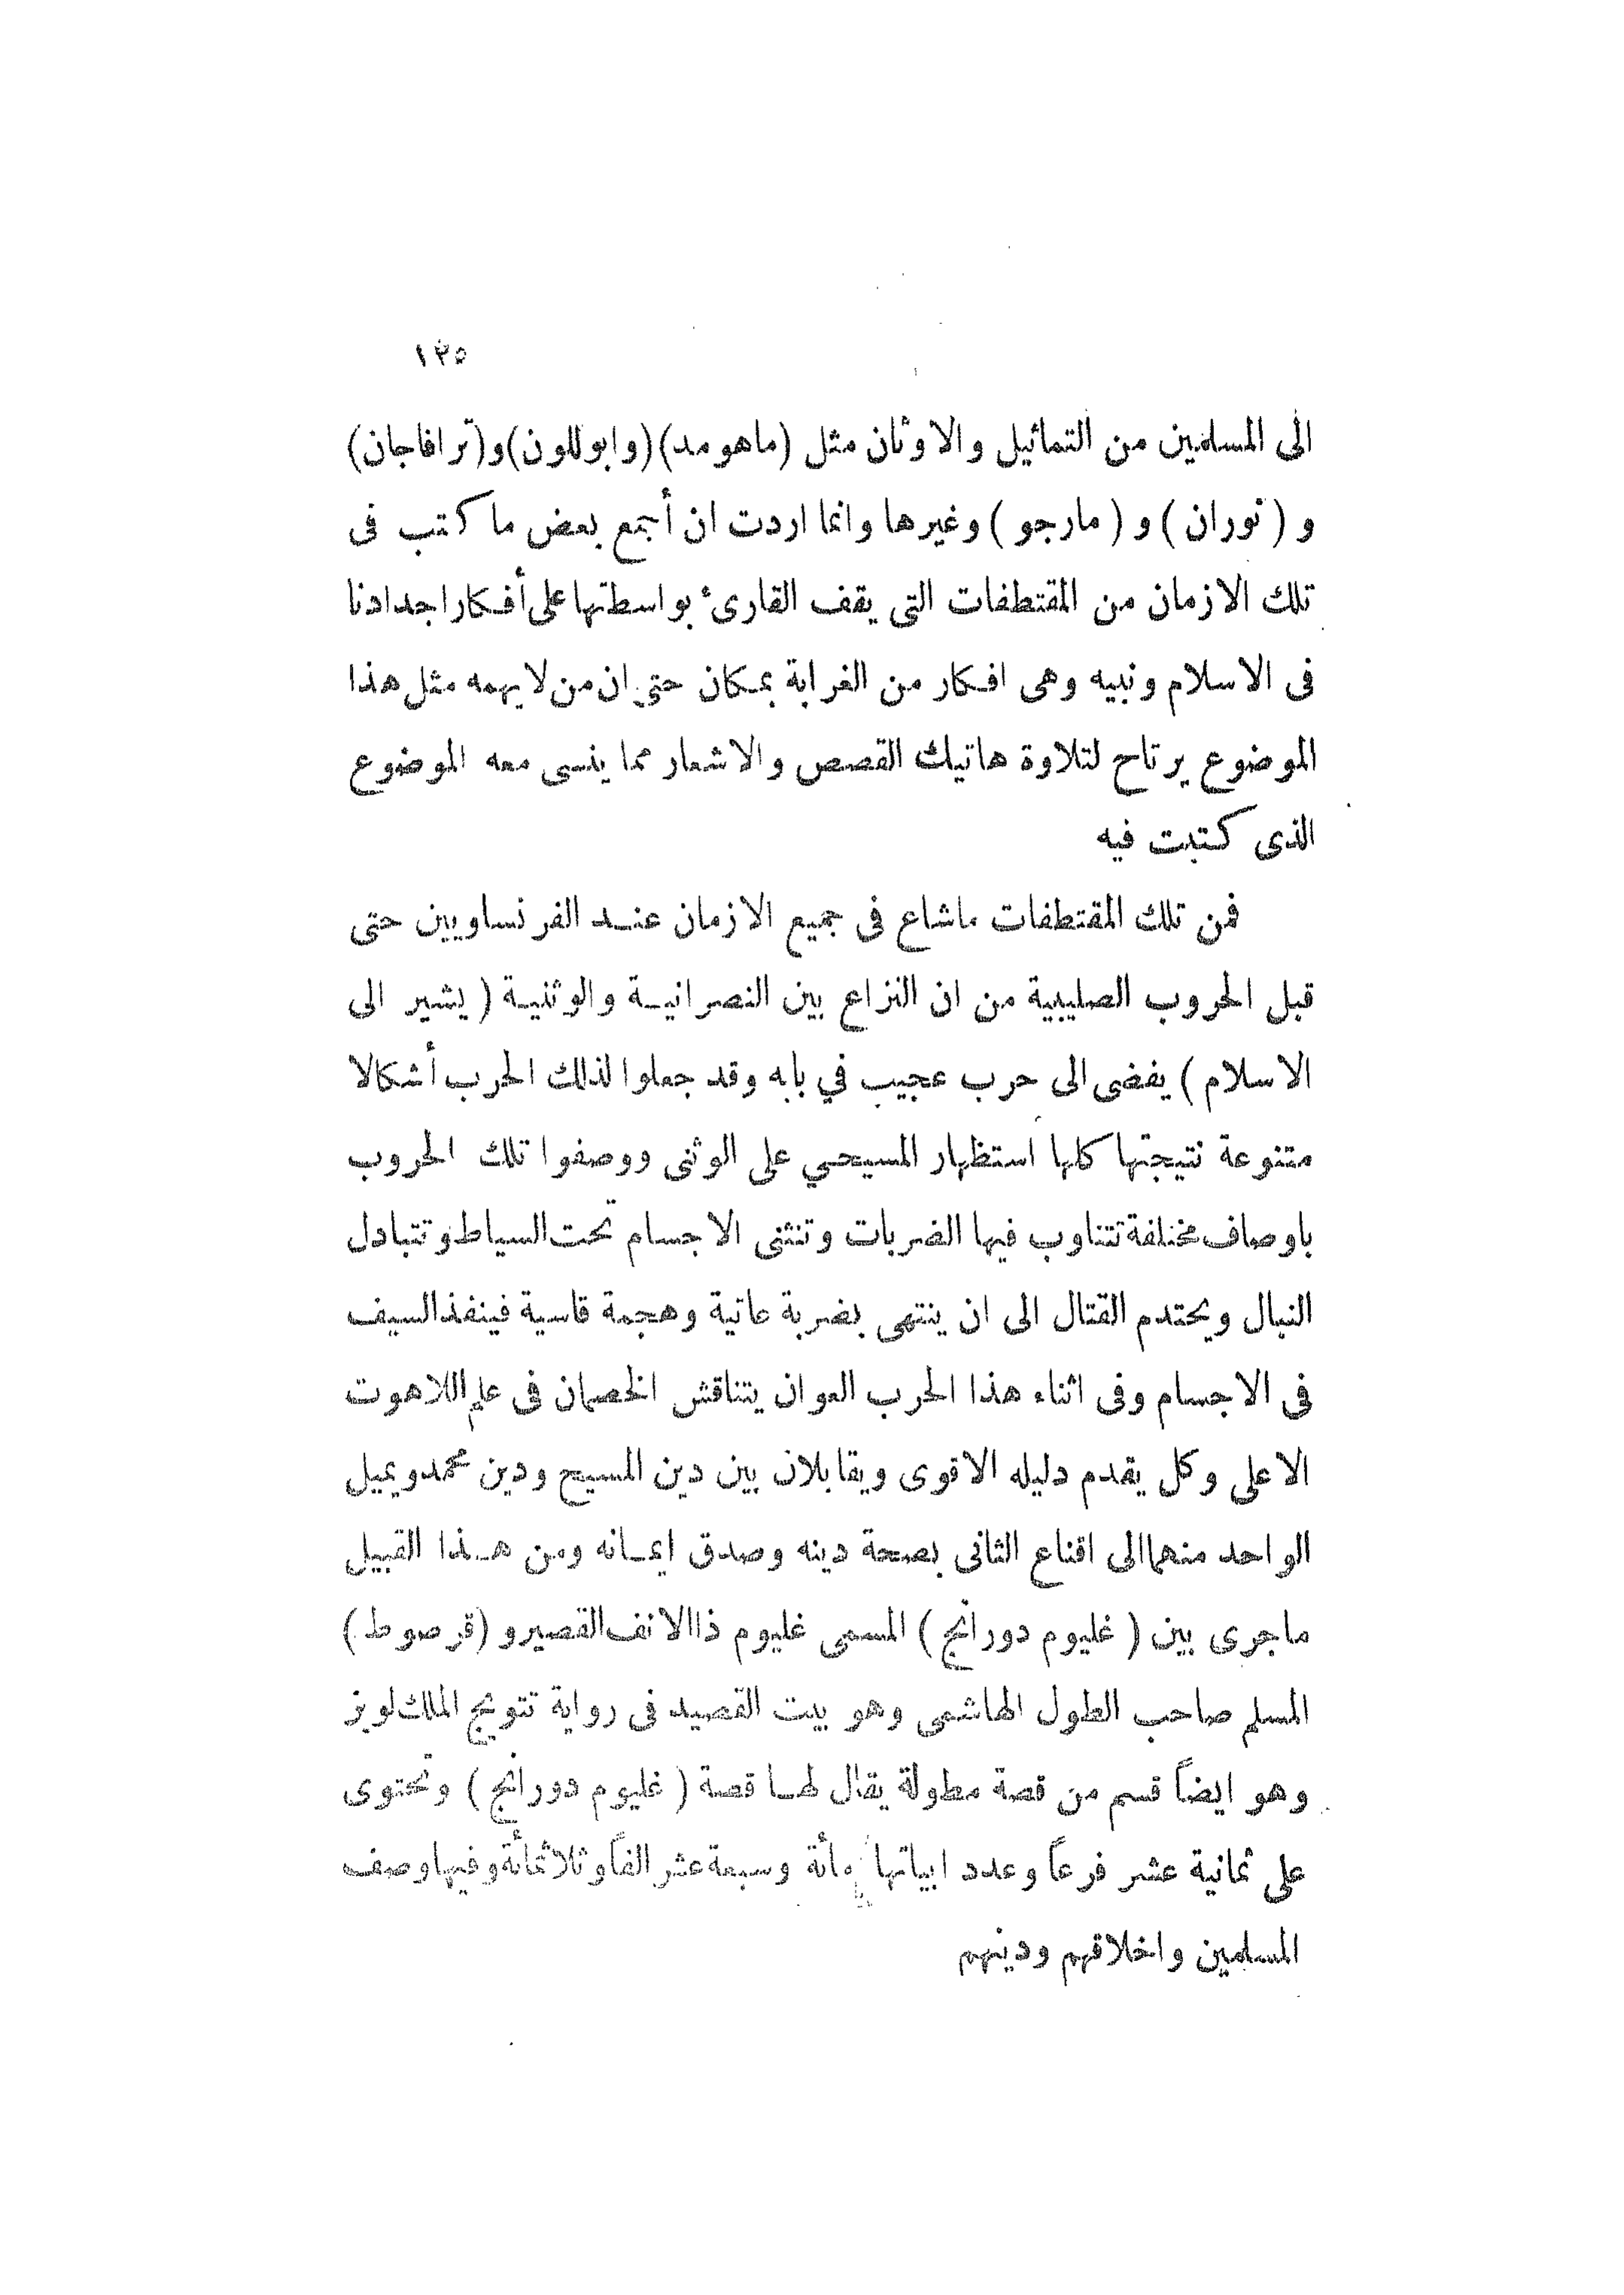 ١٢٥
الى المسلمين من التماثيل والاوثان مثل (ماهومد)(وابوللون)و(ترافاجان)
و (نوران) و (مارجو) وغيرها وانما اردت ان أجمع بعض ما كتب فى
تلك الازمان من المقتطفات التى يقف القارىء بواسطتها على أفكار اجدادنا
فى الاسلام ونبيه وهى افكار من الغرابة بمكان حتى ان من لا يهمه مثل هذا
الموضوع يرتاح لتلاوة هاتيك القصص والاشعار مما ينسى معه الموضوع
الذى كتبت فيه
فمن تلك المقتطفات ماشاع فى جميع الازمان عنـد الفرنساويين حتى
قبل الحروب الصليبية من ان النزاع بين النصرانيـة والوثنيـة ( يشير الى
الاسلام ) يفضى الى حرب عجيب في بابه وقد جعلوا لذلك الحرب أشكالا
متنوعة نتيجتها كلها استظهار المسيحي على الوثنى ووصفوا تلك الحروب
باوصاف مختلفة تتناوب فيها الضربات وتنثنى الاجسام تحت السياط وتتبادل
النبال ويحتدم القتال الى ان ينتهى بضربة عاتية وهجمة قاسية فينفذ السيف
فى الاجسام وفى اثناء هذا الحرب العوان يتناقش الخصمان فى علم اللاهوت
الاعلى وكل يقدم دليله الاقوى ويقابلان بين دين المسيح ودين محمد ويميل
الواحد منهما الى اقناع الثانى بصحة دينه وصدق ايمـانه ومن هـذا القبيل
ماجرى بين ( غليوم دورانج ) المسمى غليوم ذا الانف القصير و (قرصوط)
المسلم صاحب الطول الهاشمى وهو بيت القصيد فى رواية تتويج الملك لويز
وهو ايضاً قسم من قصة مطولة يقال لهـا قصة ( غليوم دورانج ) وتحتوى
على ثمانية عشر فرعاً وعدد ابياتها مأئة وسبعة عشر الفاً وثلاثمائة وفيها وصف
المسلمين واخلاقهم ودينهم